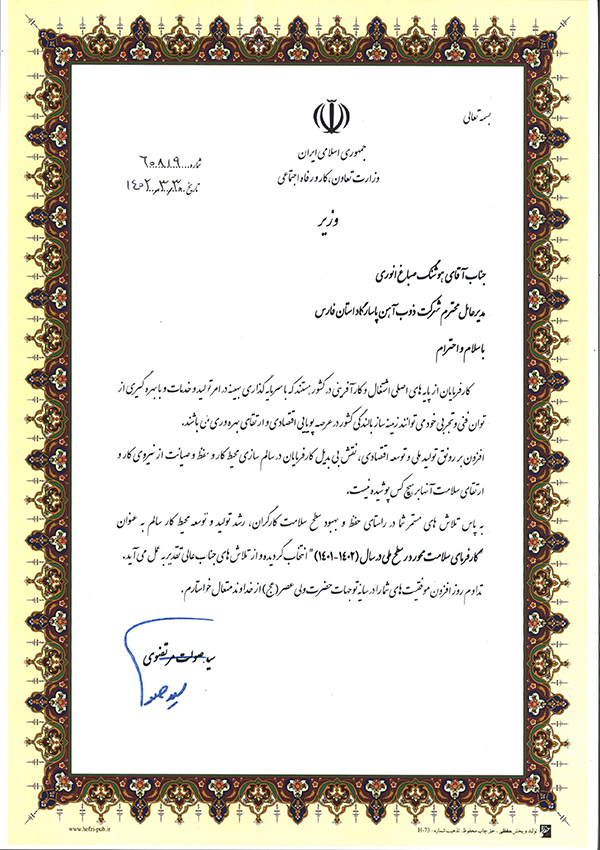 بسمه تعالی
جمهوری اسلامی ایران
وزارت تعاون، کار و رفاه اجتماعی
شماره: ۶۰۸۱۹
تاریخ: ۱۴۰۲.۳.۳۰
وزیر
جناب آقای هوشنگ صباغ انوری
مدیرعامل محترم شرکت ذوب آهن پاسارگاد استان فارس
با سلام و احترام
کارفرمایان از پایه های اصلی اشتغال و کارآفرینی در کشور هستند که با سرمایه گذاری بهینه در امر تولید و خدمات و با بهره گیری از
توان فنی و تجربی خود می توانند زمینه ساز بالندگی کشور در عرصه پویایی اقتصادی و ارتقای بهره وری می باشند.
افزون بر رونق تولید ملی و توسعه اقتصادی، نقش بی بدیل کارفرمایان در سالم سازی محیط کار و حفظ و صیانت از نیروی کار و
ارتقای سلامت آنها بر هیچ کس پوشیده نیست.
به پاس تلاش های مستمر شما در راستای حفظ و بهبود سطح سلامت کارگران، رشد تولید و توسعه محیط کار سالم به عنوان
"کارفرمای سلامت محور در سطح ملی در سال (۱۴۰۲-۱۴۰۱)" انتخاب گردیده و از تلاش های جناب عالی تقدیر به عمل می آید.
تداوم روز افزون موفقیت های شما را در سایه توجهات حضرت ولی عصر (عج) از خداوند متعال خواستارم.
سید صولت مرتضوی
www.hefzi-pub.ir
تولید و پخش حفظی - حق چاپ محفوظ. تذهیب شماره: H-73